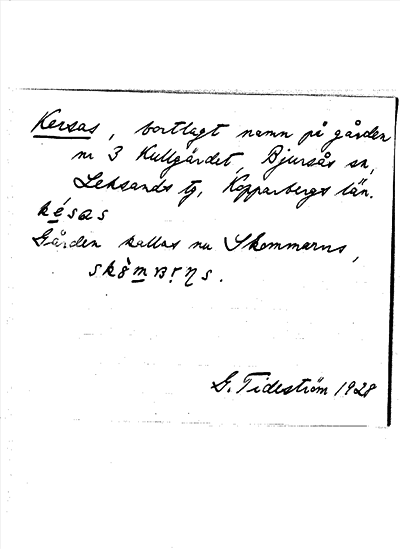 Kersas, bortlagt namn på gården
nr 3 Kullgärdet, Bjursås sn,
Leksands tg, Kopparbergs län.
késas
Gården kallas nu Skommarns,